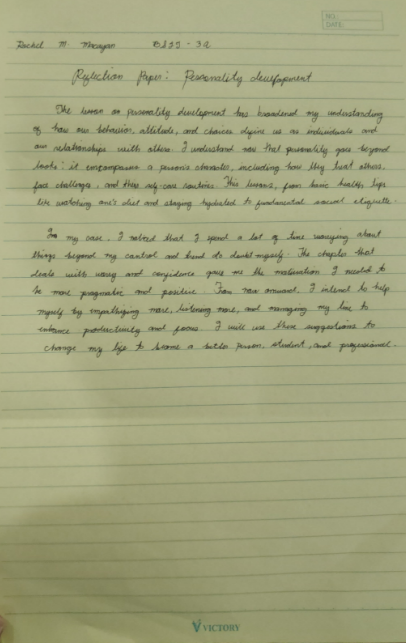 NO.:
DATE:
Rachel M. BSIT - 3A
Reflection Paper: Personality development
The lesson on personality development has broadened my understanding
of how our behavior, attitude, and choices define us as individuals and
our relationships with others. I understand now that personality goes beyond
looks; it encompasses a person's character, including how they treat others,
face challenges, and their self-care routines. This lesson, from basic health tips
like watching one's diet and staying hydrated to fundamental social etiquette.
In my case, I noticed that I spend a lot of time worrying about
things beyond my control and tend to doubt myself. The chapter that
deals with worry and confidence gave me the motivation I needed to
be more pragmatic and positive. From now onward, I intend to help
myself by empathizing more, listening more, and managing my time to
enhance productivity and focus. I will use these suggestions to
change my life to become a better person, student, and professional.
VICTORY